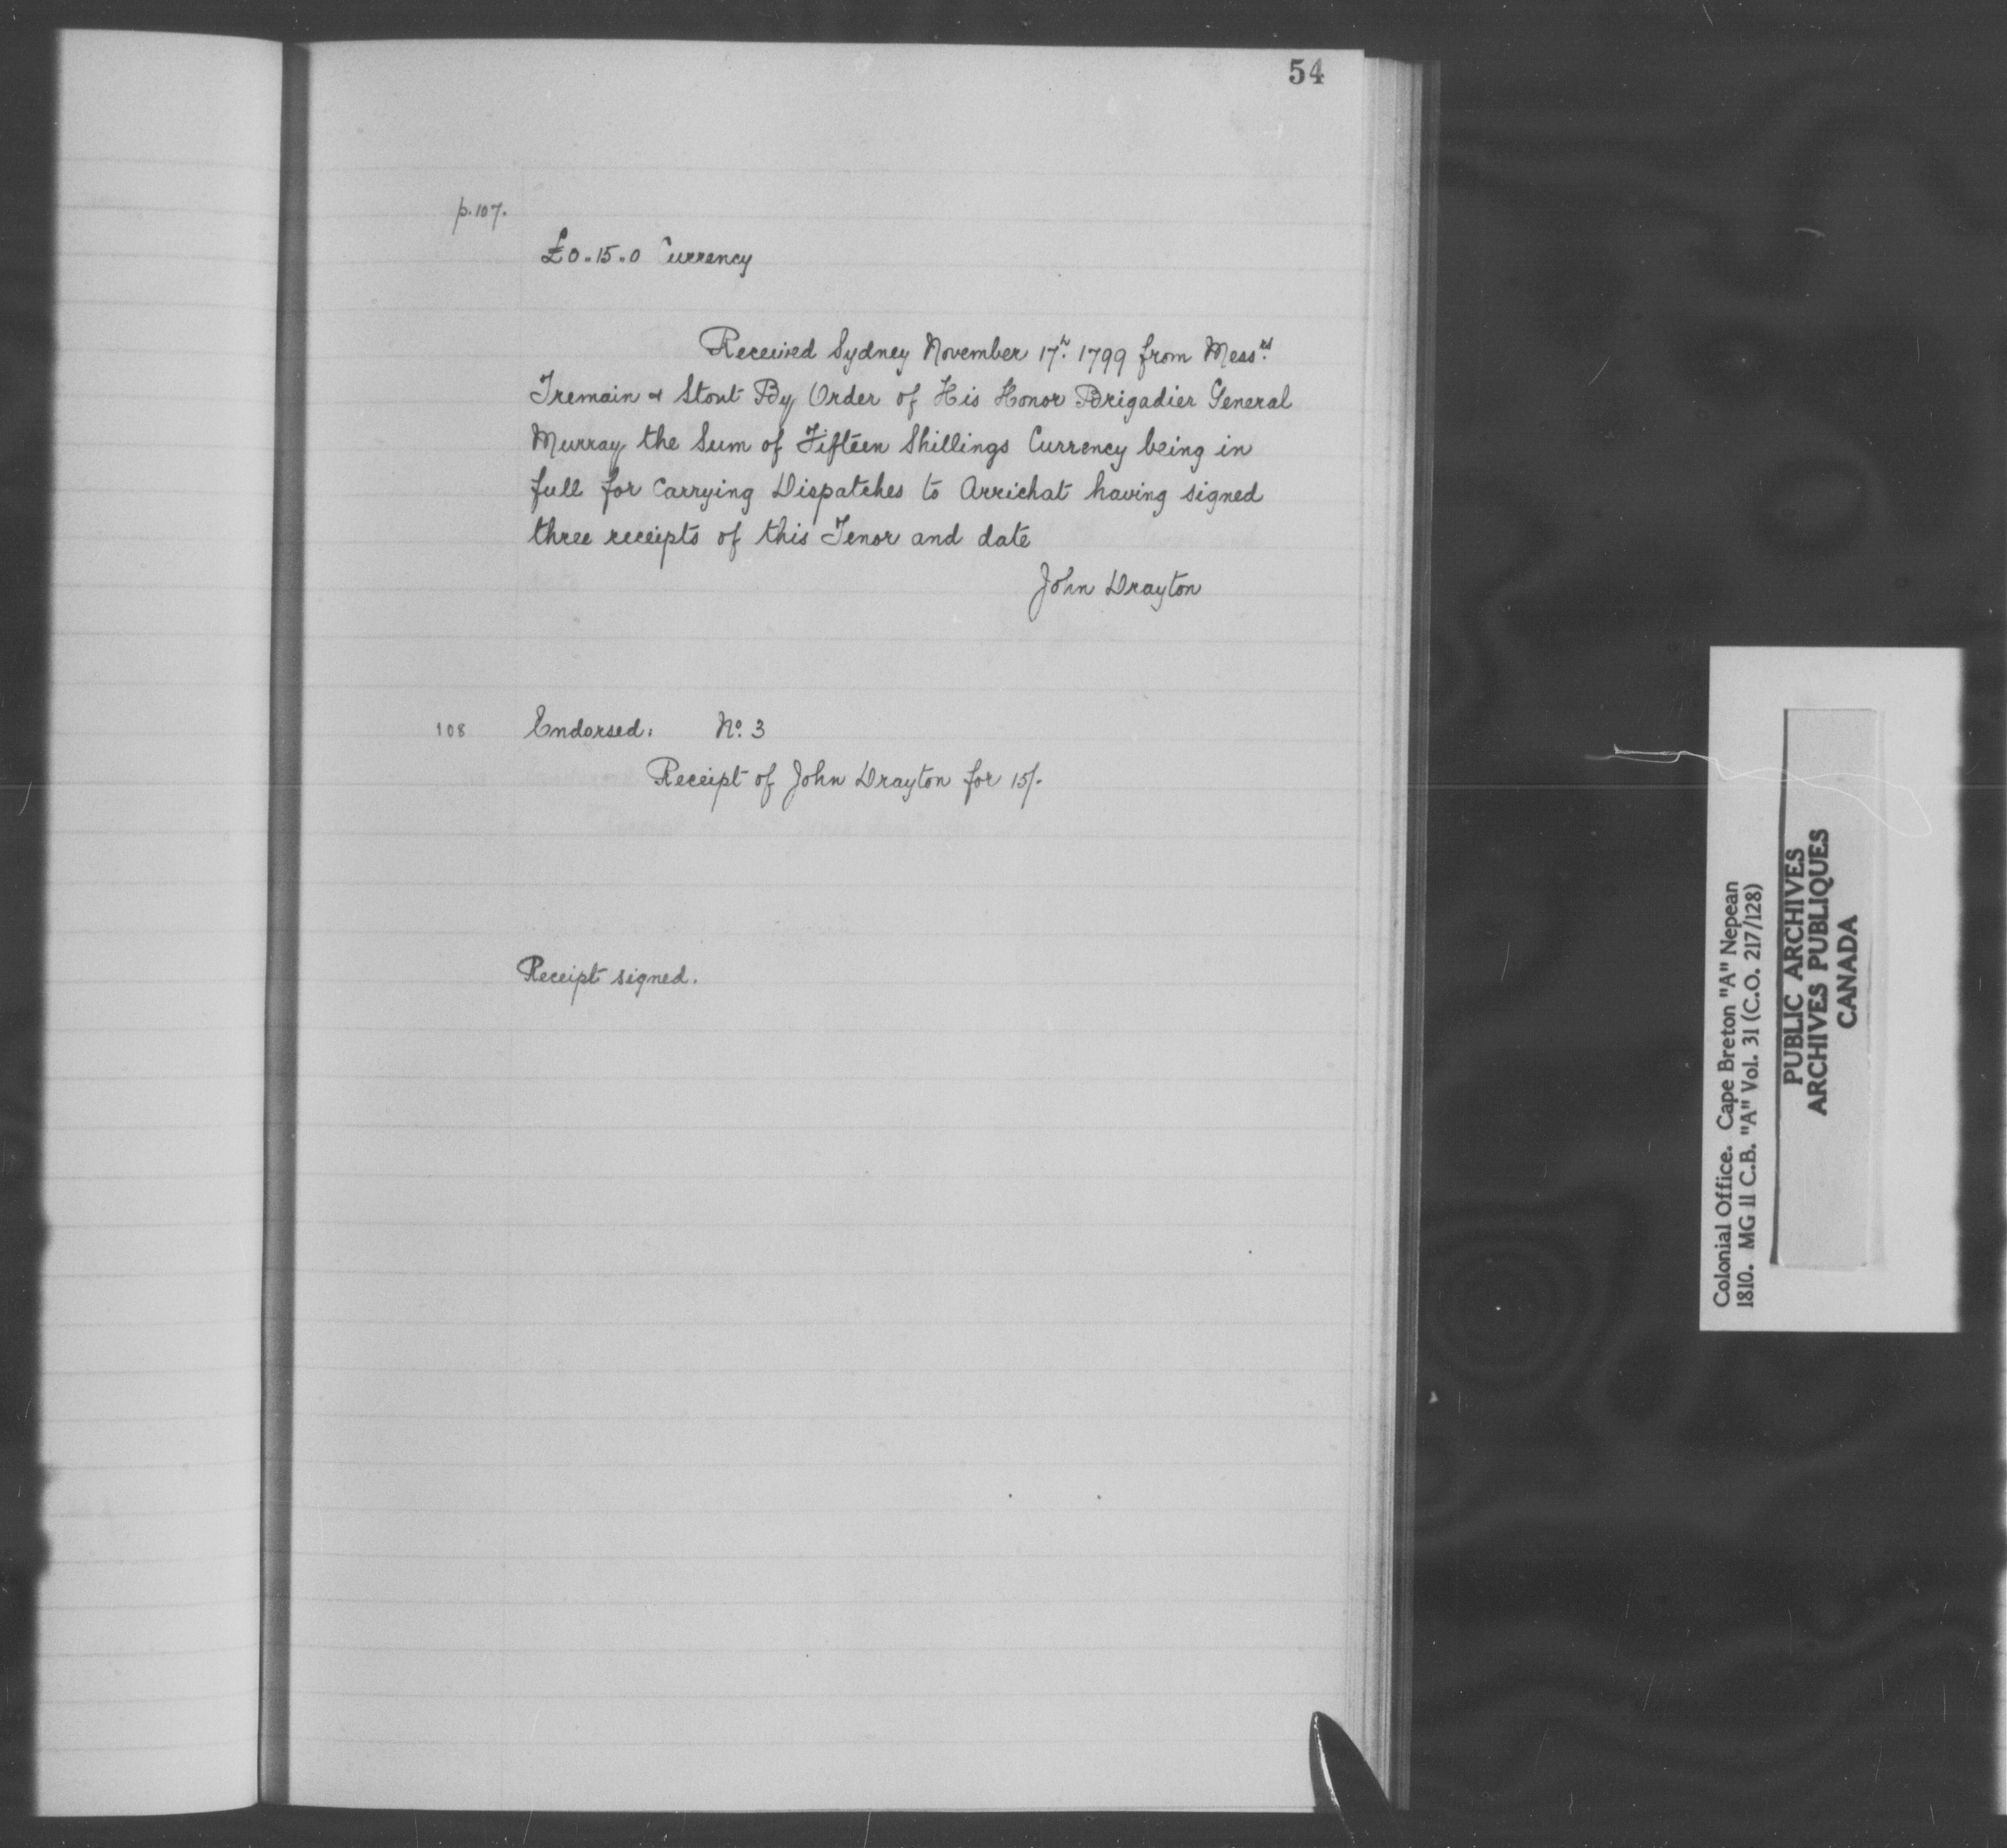 54
p. 107.
£0.. 15.. 0 Currency
Received Sydney November 17th. 1799 from Messrs.
Tremain & Stout By Order of His Honor Brigadier General
Murray the Sum of Fifteen Shillings Currency being in
full for Carrying Dispatches to Arrichat having signed
three receipts of this Tenor and date
John Drayton
108 Endorsed: No. 3
Receipt of John Drayton for 15/.
Receipt signed.
Colonial Office. Cape Breton "A" Nepean
1810. MG 11 C.B. "A" Vol. 31 (C.O. 217/128)
PUBLIC ARCHIVES
ARCHIVES PUBLIQUES
CANADA